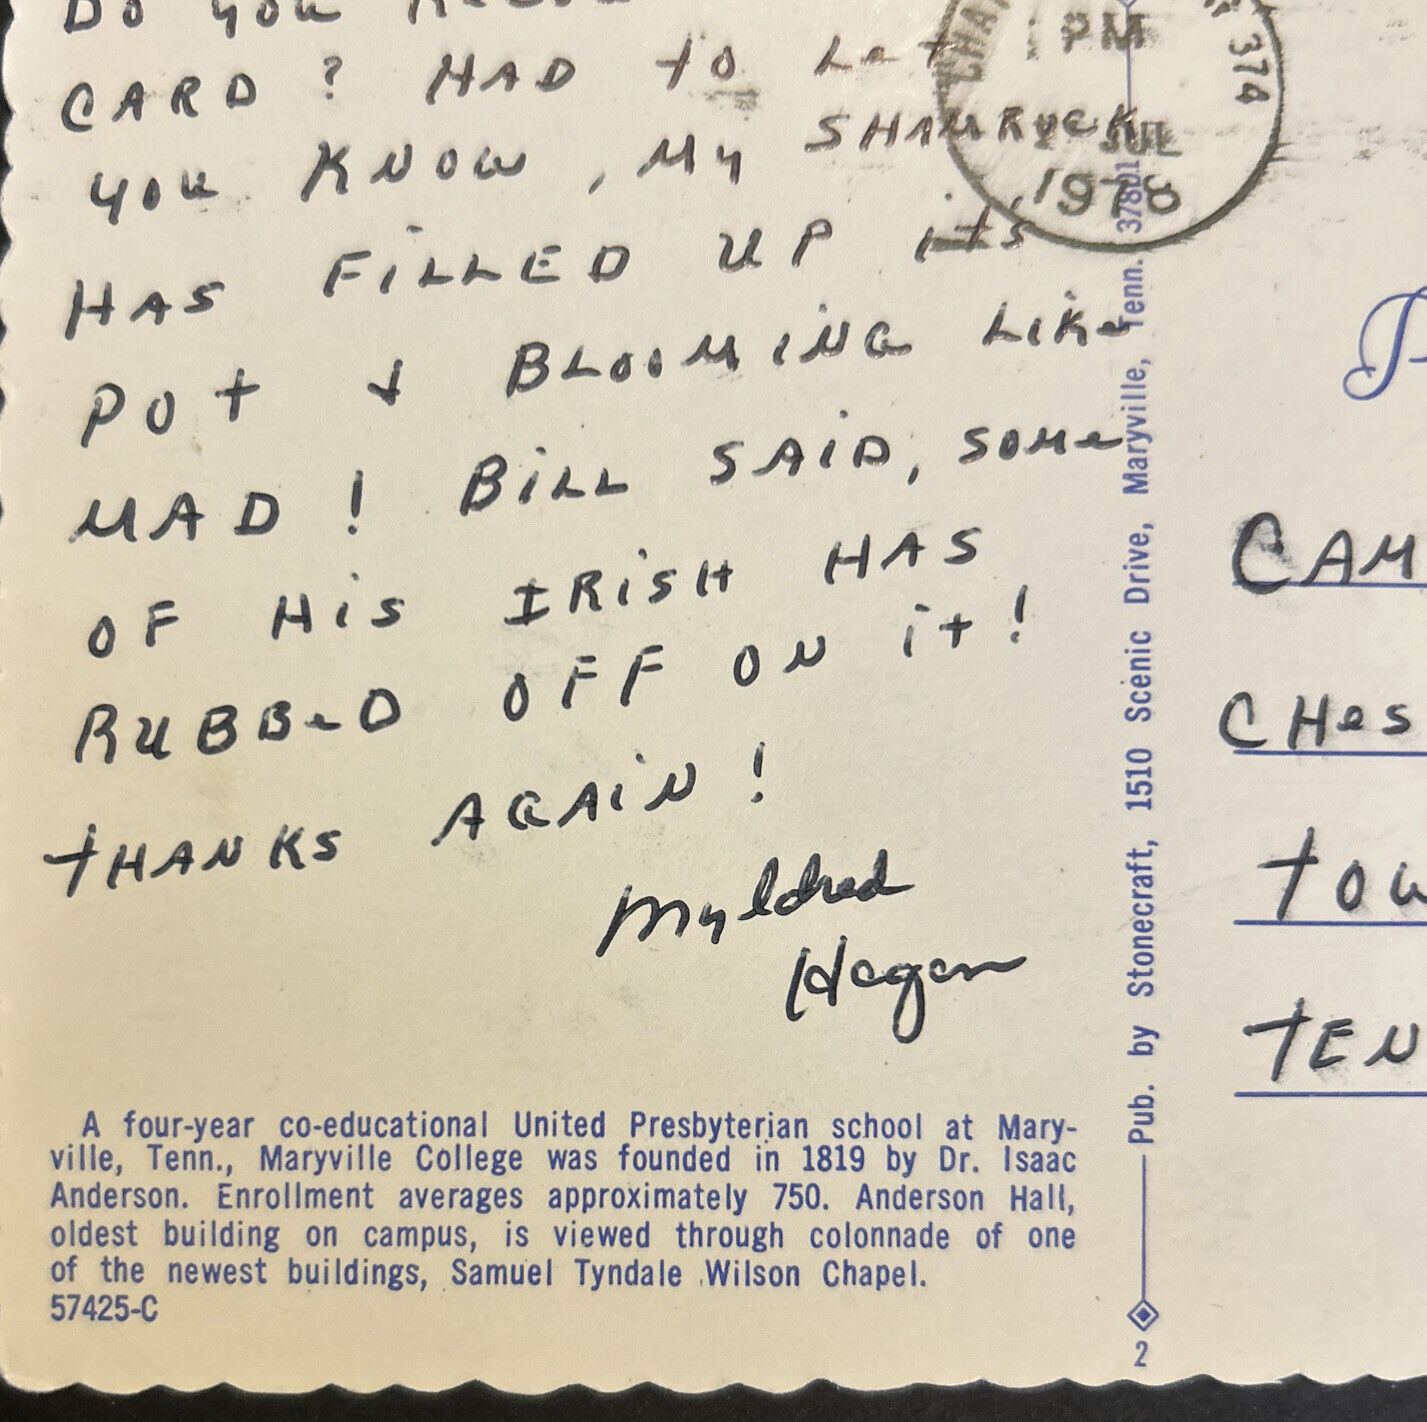 Do you
CARD? HAD to Let
you KNOW, My SHAMROCK
HAS FiLLED UP its
POt & BLOOMiNG LiKe
MAD! BiLL SAiD, SOMe
OF HiS IRiSH HAS
RUBBeD OFF ON it!
tHANKS AGAiN!
Myldred
Hagan
A four-year co-educational United Presbyterian school at Mary-
ville, Tenn., Maryville College was founded in 1819 by Dr. Isaac
Anderson. Enrollment averages approximately 750. Anderson Hall,
oldest building on campus, is viewed through colonnade of one
of the newest buildings, Samuel Tyndale Wilson Chapel.
57425-C
Pub. by Stonecraft, 1510 Scenic Drive, Maryville, Tenn. 37801
2
CHA
374
1 PM
JUL
1978
P
CAM
CHes
tOW
tEN